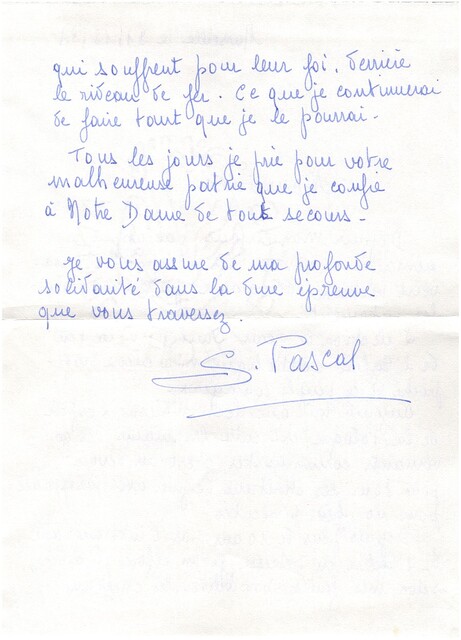 qui souffrent pour leur foi. derrière
le rideau de fer. Ce que je continuerai
de faire tant que je le pourrai.
Tous les jours je prie pour votre
malheureuse patrie que je confie
à Notre Dame de tout secours.
Je vous assure de ma profonde
solidarité dans la dure épreuve
que vous traversez.
S. Pascal